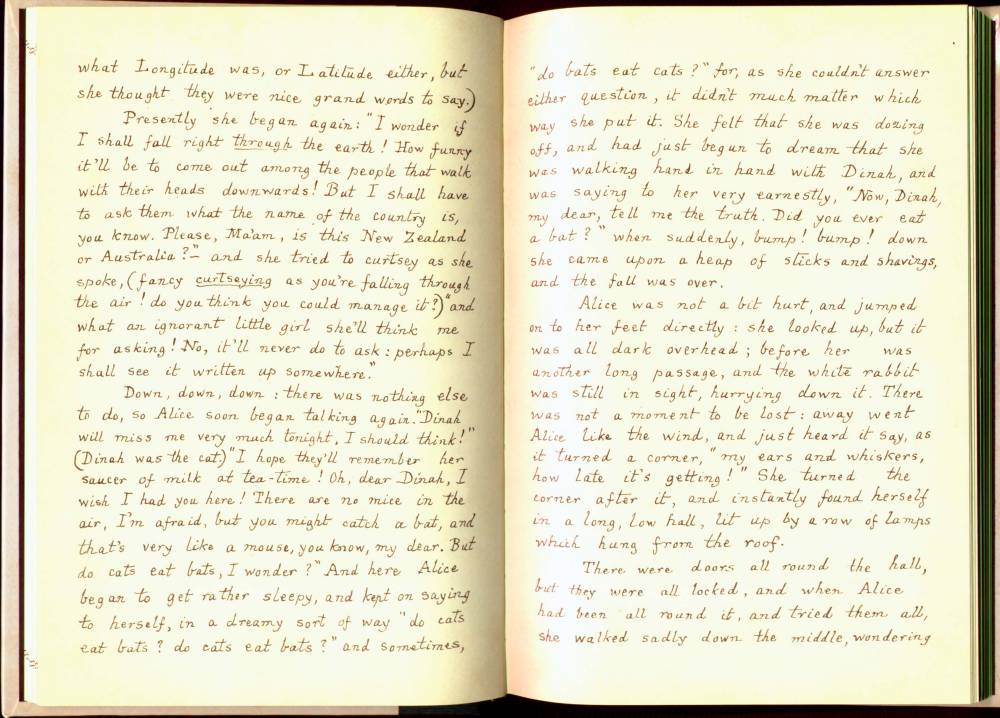 what Longitude was, or Latitude either, but
she thought they were nice grand words to say.)
Presently she began again: "I wonder if
I shall fall right through the earth! How funny
it'll be to come out among the people that walk
with their heads downwards! But I shall have
to ask them what the name of the country is,
you know. Please, Ma'am, is this New Zealand
or Australia?"- and she tried to curtsey as she
spoke, (fancy curtseying as you're falling through
the air! do you think you could manage it?) "and
what an ignorant little girl she'll think me
for asking! No, it'll never do to ask: perhaps I
shall see it written up somewhere."
Down, down, down: there was nothing else
to do, so Alice soon began talking again. "Dinah
will miss me very much tonight, I should think!"
(Dinah was the cat) "I hope they'll remember her
saucer of milk at tea-time! Oh, dear Dinah, I
wish I had you here! There are no mice in the
air, I'm afraid, but you might catch a bat, and
that's very like a mouse, you know, my dear. But
do cats eat bats, I wonder?" And here Alice
began to get rather sleepy, and kept on saying
to herself, in a dreamy sort of way "do cats
eat bats? do cats eat bats?" and sometimes,
"do bats eat cats?" for, as she couldn't answer
either question, it didn't much matter which
way she put it. She felt that she was dozing
off, and had just begun to dream that she
was walking hand in hand with Dinah, and
was saying to her very earnestly, "Now, Dinah,
my dear, tell me the truth. Did you ever eat
a bat?" when suddenly, bump! bump! down
she came upon a heap of sticks and shavings,
and the fall was over.
Alice was not a bit hurt, and jumped
on to her feet directly: she looked up, but it
was all dark overhead; before her was
another long passage, and the white rabbit
was still in sight, hurrying down it. There
was not a moment to be lost: away went
Alice like the wind, and just heard it say, as
it turned a corner, "my ears and whiskers,
how late it's getting!" She turned the
corner after it, and instantly found herself
in a long, low hall, lit up by a row of lamps
which hung from the roof.
There were doors all round the hall,
but they were all locked, and when Alice
had been all round it, and tried them all,
she walked sadly down the middle, wondering